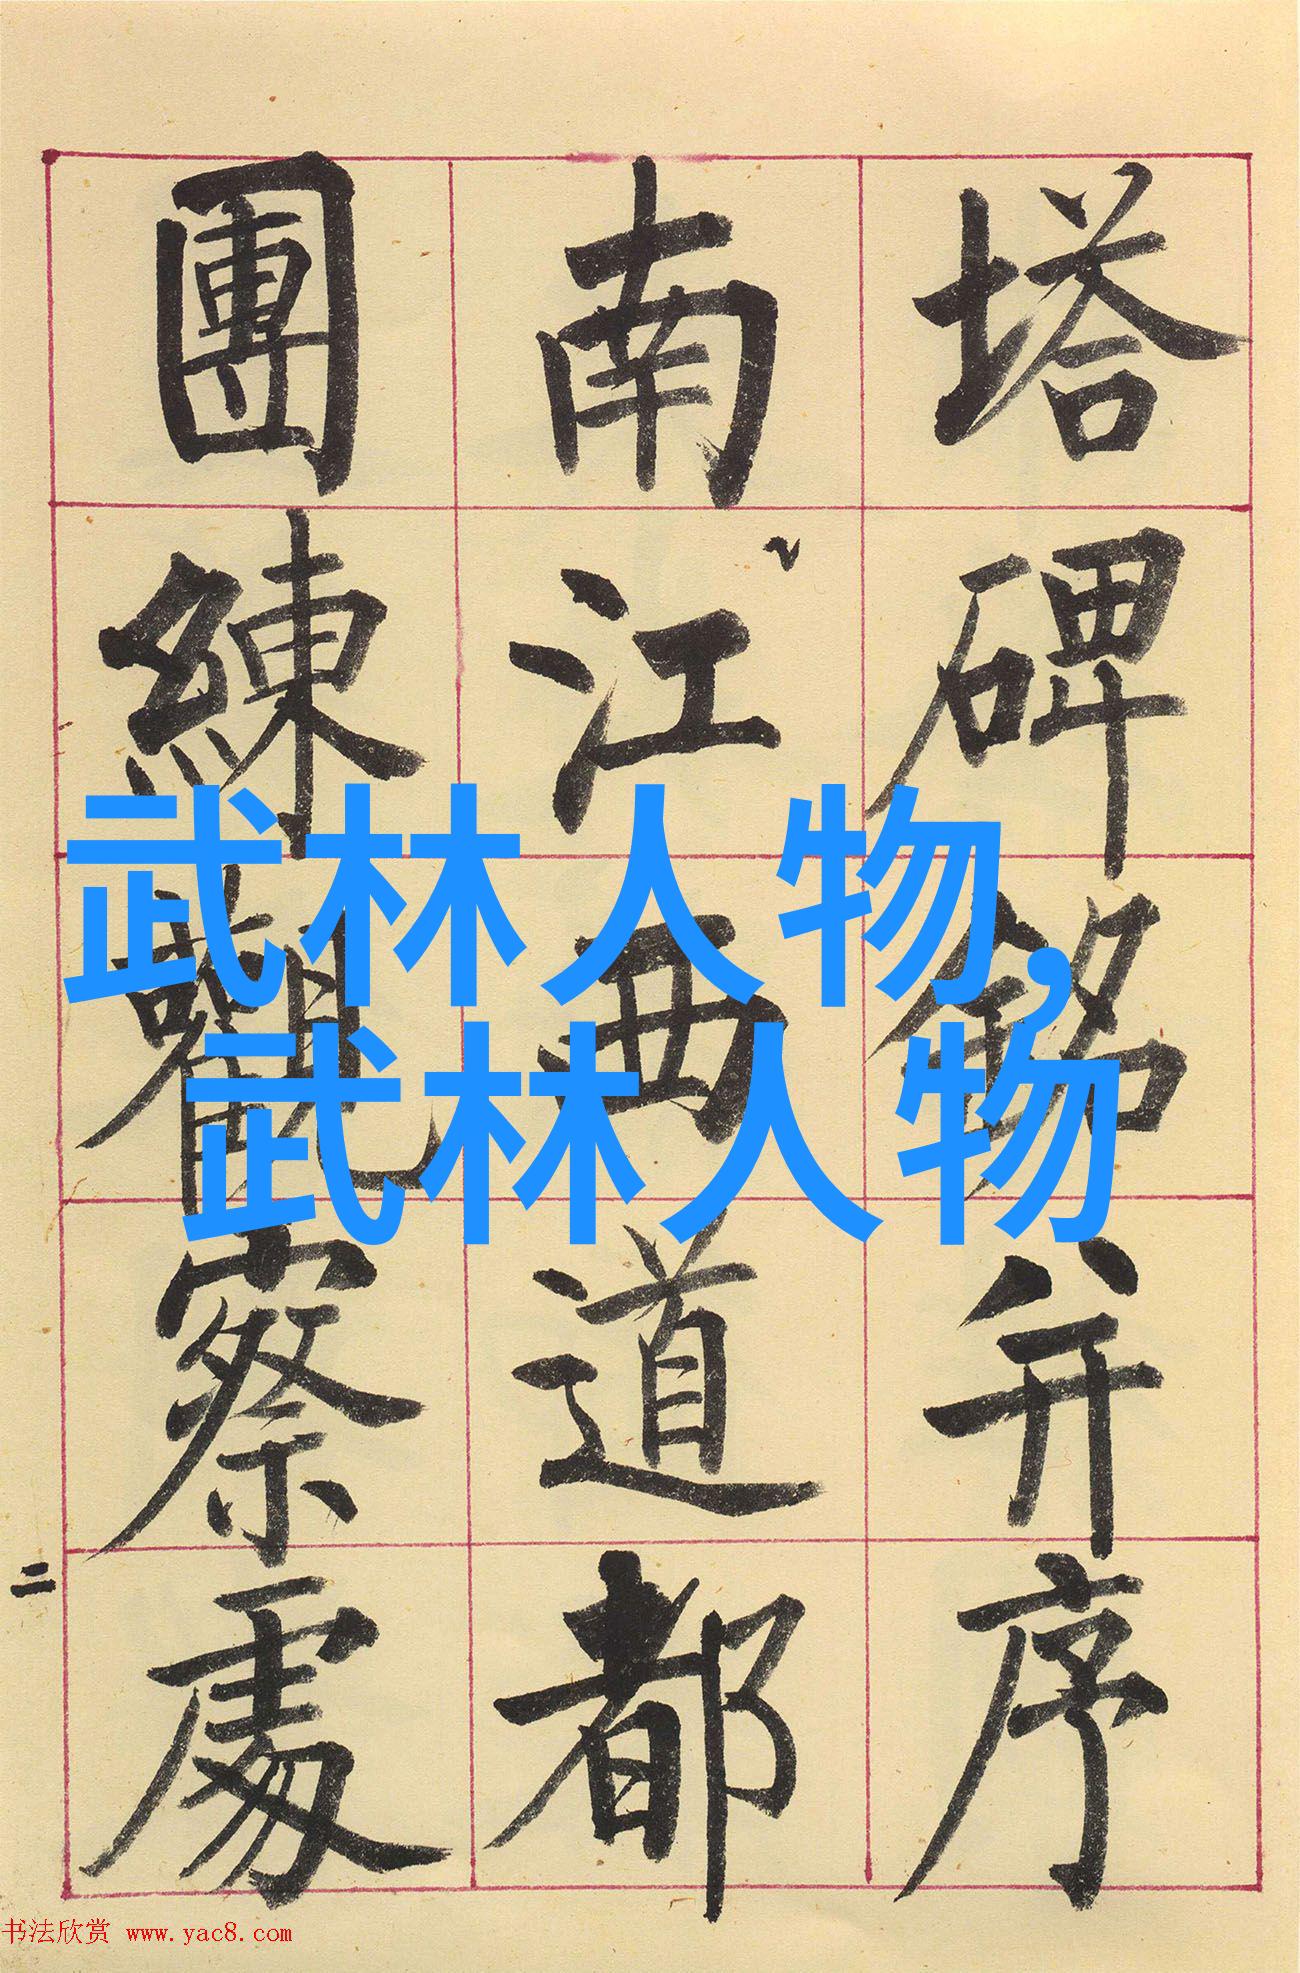 塔碑銘并序
南江西道都
團練觀察處
武林人物,
武林人物
二
书法欣赏 www.yac8.com